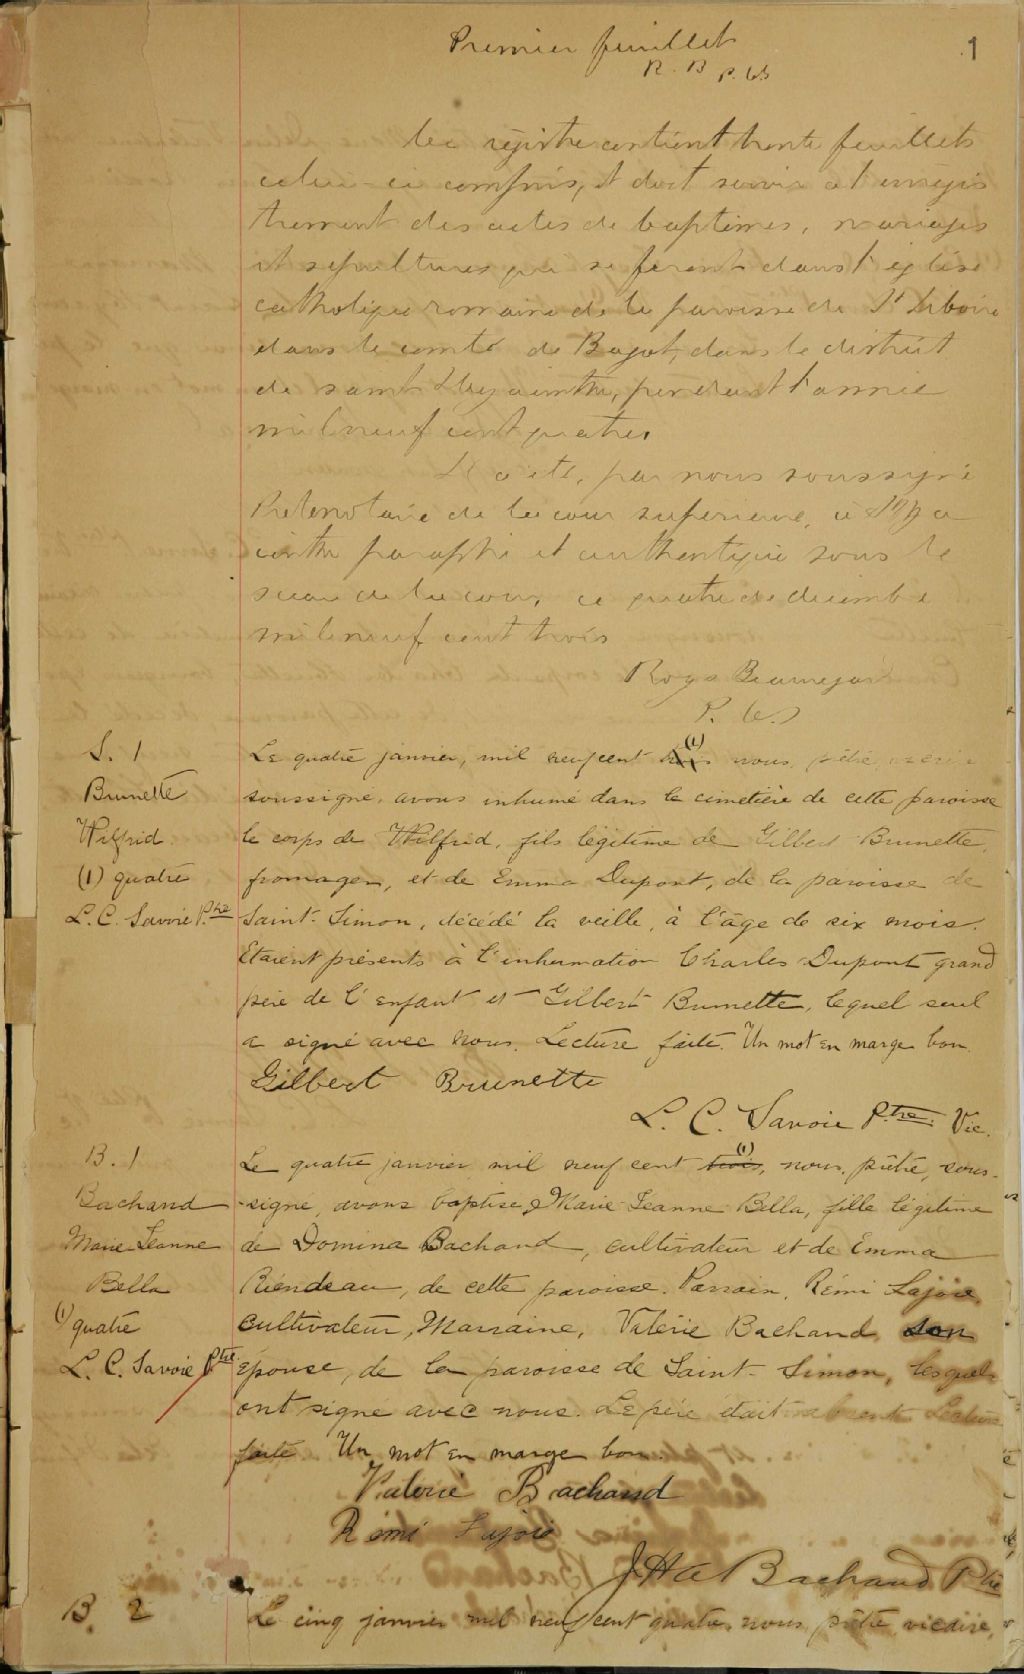 Premier feuillet
1
R. B P. C.S
registre contient trente feuillets
celui-ci compris, et doit servir à l'enregis
trement des actes de baptêmes, mariages
et sépultures qui se feront dans l'église
catholique romaine de la paroisse de St Liboire
dans le comté de Bagot, dans le district
de saint Hyacinthe, pendant l'année
mil neuf cent quatre.
Il a été, par nous soussigné
Protonotaire de la cour supérieure, à
contre paraphé et authentiqué sous le
sceau de la cour, ce quatre de décembre
mil neuf cent trois
Roy & Beauregard
P. C. S
S. 1
Brunette
Wilfrid.
(1) quatre
L. C. Savoie Ptre
Le quatre janvier, mil neuf cent trois (1) nous, prêtre, vicaire
soussigné, avons inhumé dans le cimetière de cette paroisse
le corps de Wilfrid, fils légitime de Gilbert Brunette,
fromager, et de Emma Dupont, de la paroisse de
Saint-Simon, décédé la veille, à l'âge de six mois.
Etaient présents à l'inhumation Charles Dupont grand
père de l'enfant et Gilbert Brunette, lequel seul
a signé avec nous. Lecture faite. Un mot en marge bon.
Gilbert Brunette
L. C. Savoie Ptre. Vic.
B. 1
Bachand
Marie-Jeanne
Bella
(1) quatre
L. C. Savoie Ptre
Le quatre janvier mil neuf cent trois (1), nous, prêtre, sous-
-signé, avons baptisé Marie Jeanne Bella, fille légitime
de Domina Bachand, cultivateur et de Emma
Riendeau, de cette paroisse. Parrain, Rémi Lajoie,
cultivateur, Marraine, Valérie Bachand son
épouse, de la paroisse de Saint-Simon, lesquels
ont signé avec nous. Le père était absent. Lecture
faite Un mot en marge bon.
Valérie Bachand
Rémi Lajoie
J H A Bachand Ptre
B. 2
Le cinq janvier mil neuf cent quatre, nous prêtre, vicaire,